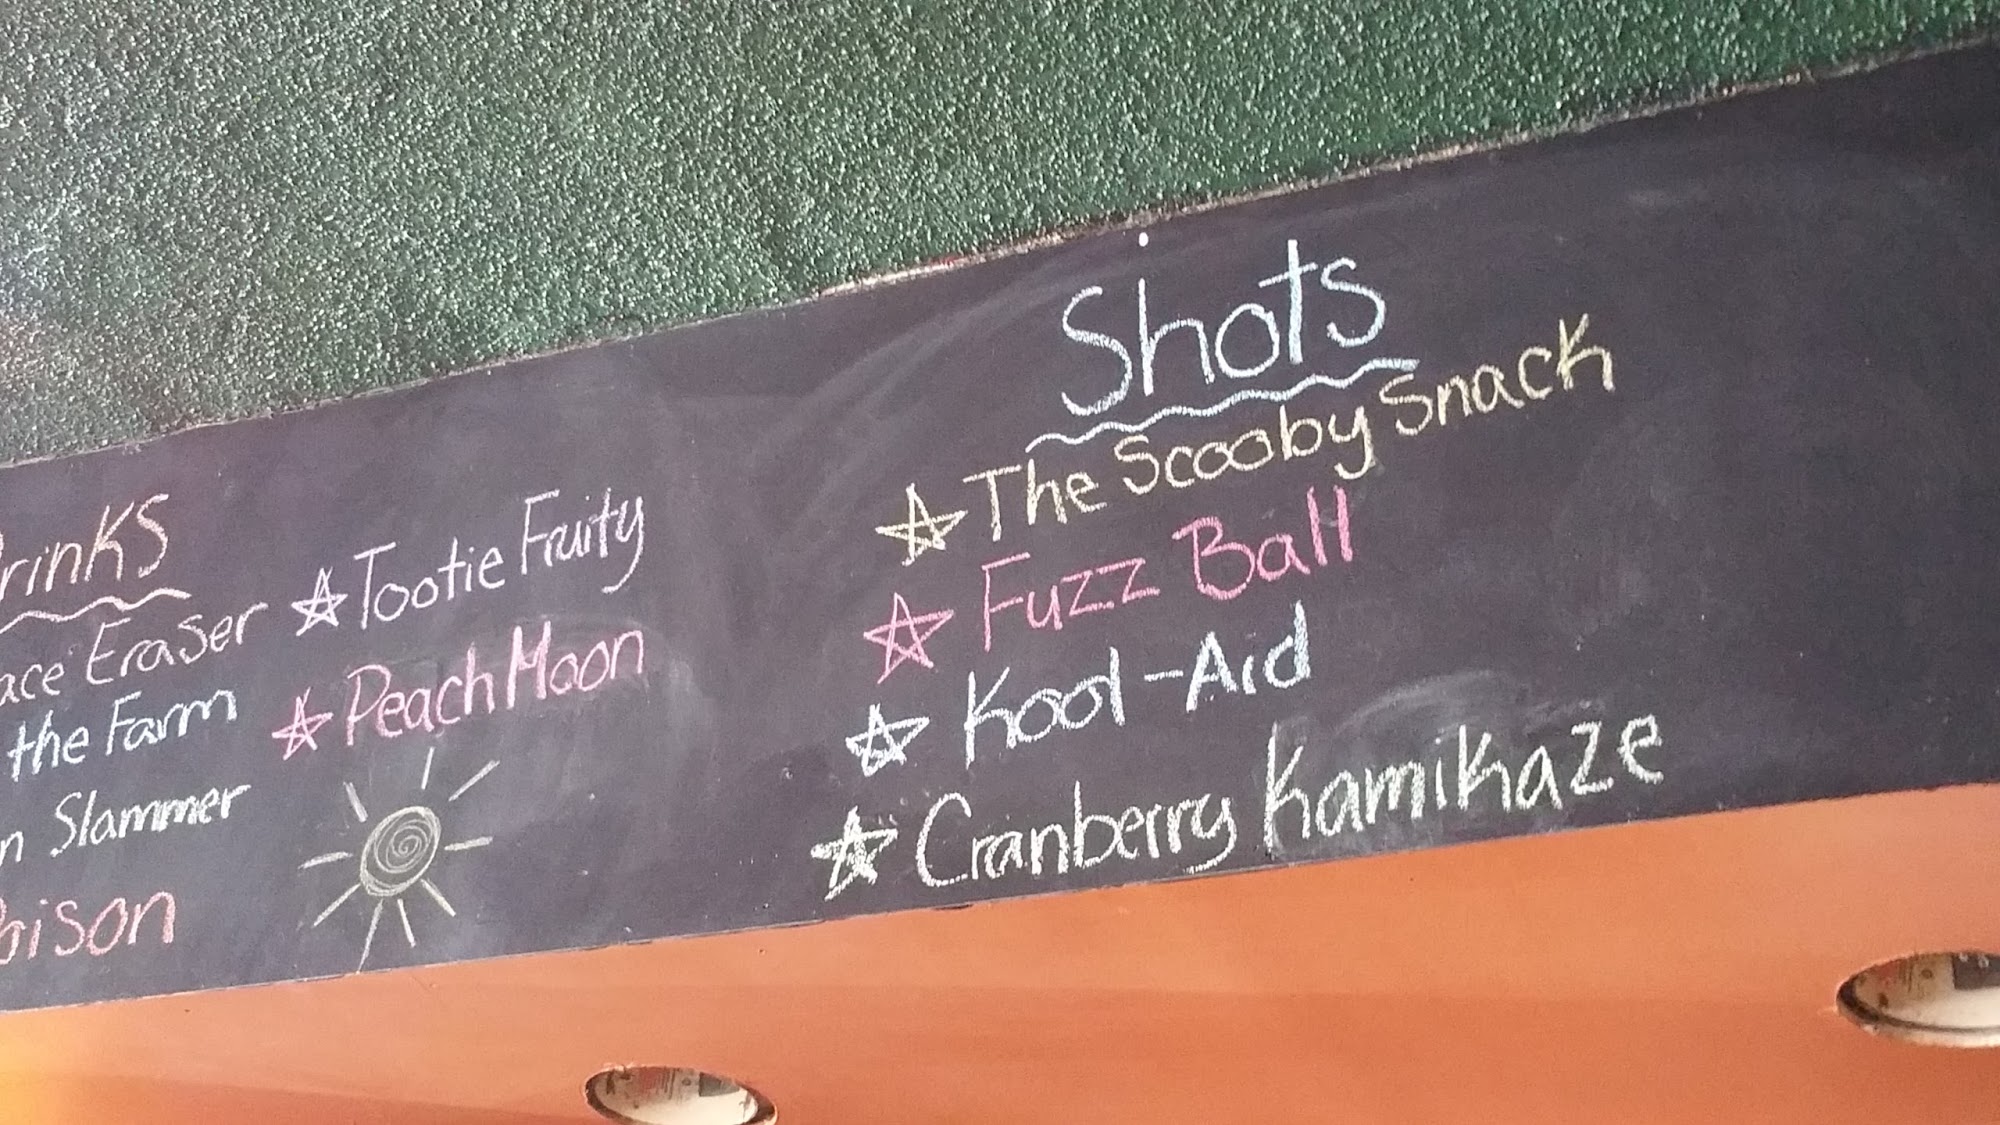 Drinks
Eraser
the Farm
Slammer
Tootie Fruity
Peach Moon
Shots
The Scooby Snack
Fuzz Ball
Kool-Aid
Cranberry Kamikaze